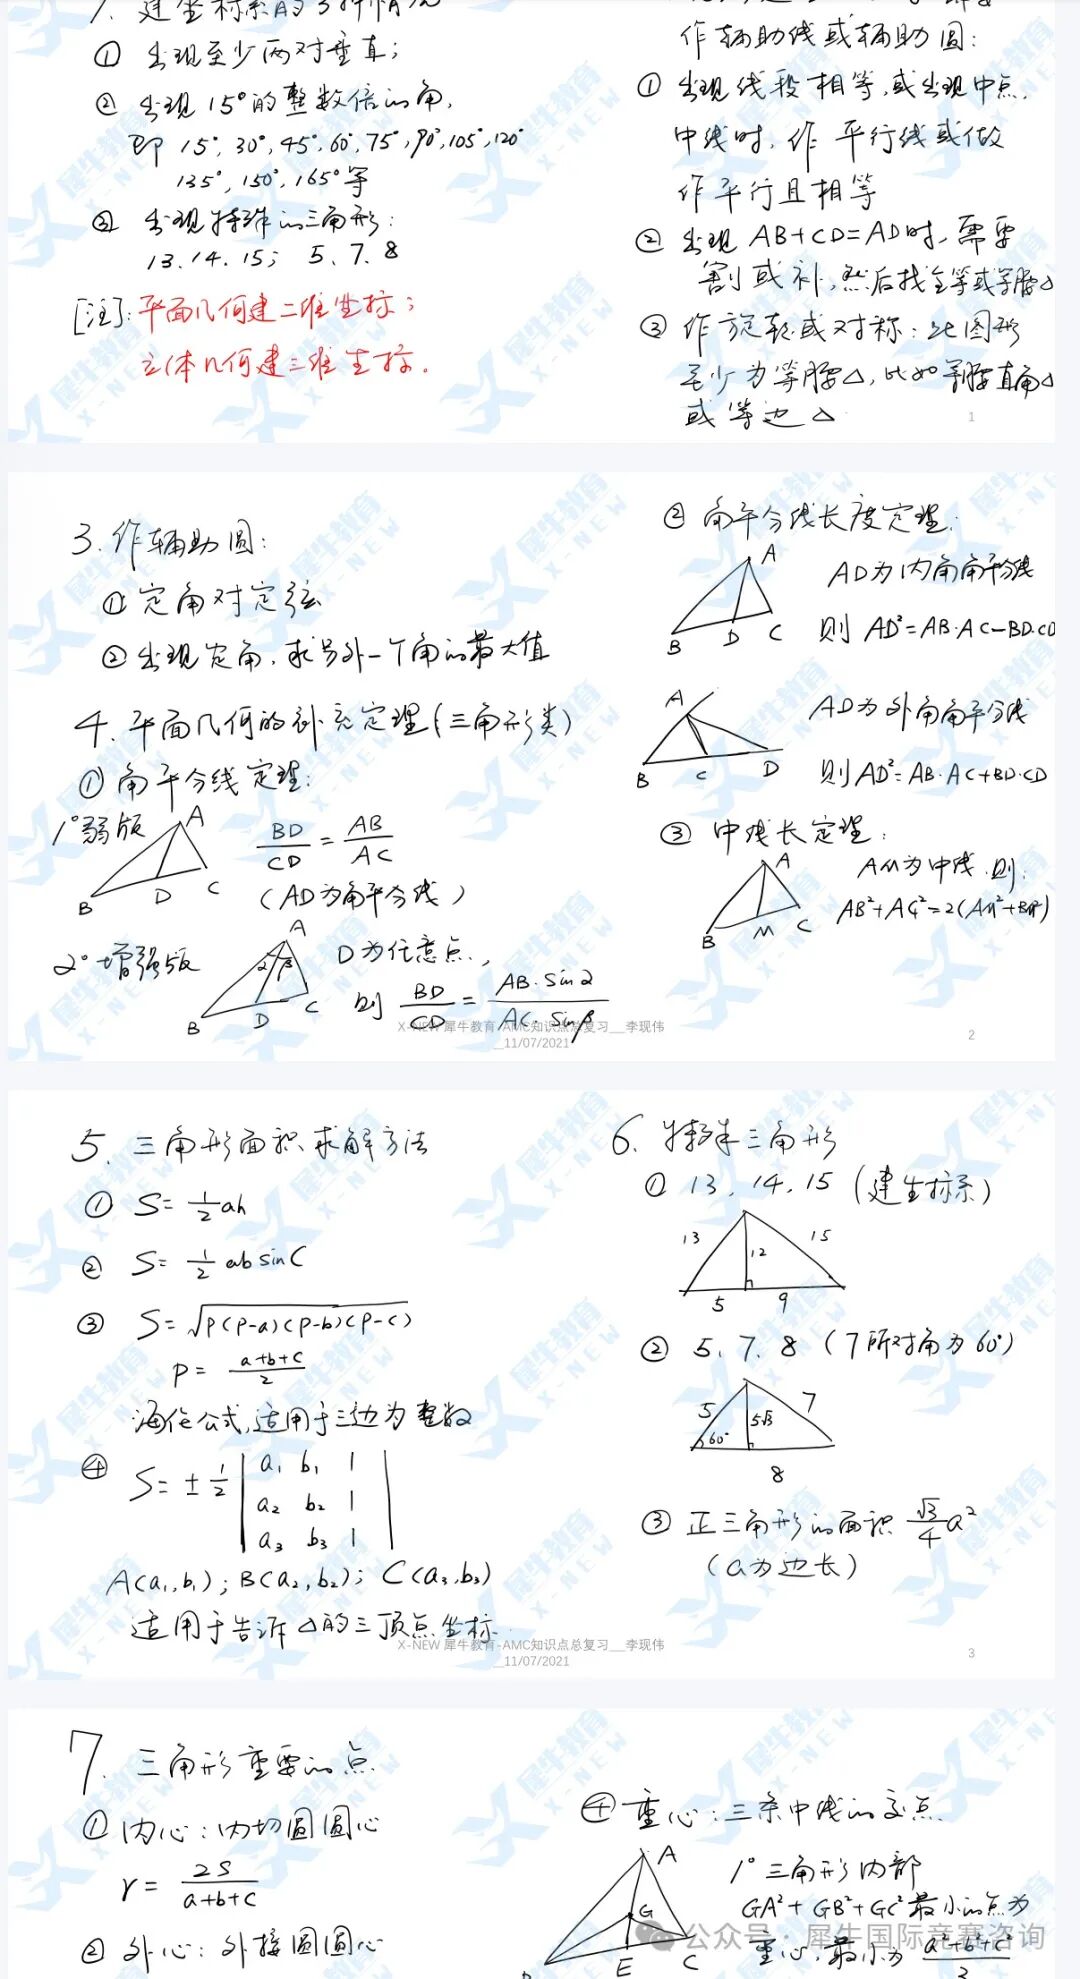 1. 建坐标系的3种情况
① 出现至少两对垂直；
② 出现15°的整数倍的角,
即 15°, 30°, 45°, 60°, 75°, 90°, 105°, 120°
135°, 150°, 165°等
③ 出现特殊的三角形：
13. 14. 15； 5. 7. 8
[注]：平面几何建二维坐标；
立体几何建三维坐标.
作辅助线或辅助圆：
① 出现线段相等, 或出现中点,
中线时, 作 平行线或做
作平行且相等
② 出现 AB+CD=AD时, 需要
割或补, 然后找全等或等腰△
③ 作旋转或对称：此图形
至少为等腰△, 比如等腰直角△
或等边△
1
3. 作辅助圆：
① 定角对定弦
② 出现定角, 求另外一个角的最大值
4. 平面几何的补充定理(三角形类)
① 角平分线定理：
1° 弱版
A
B
D
C
BD/CD = AB/AC
(AD为角平分线)
2° 增强版
A
α β
B
D
C
D为任意点,
则 BD/CD = AB·sinα/AC·sinβ
② 角平分线长度定理：
A
B
D
C
AD为内角角平分线
则 AD²=AB·AC−BD·CD
A
B
C
D
AD为外角角平分线
则AD²=AB·AC+BD·CD
③ 中线长定理：
A
B
M
C
AM为中线, 则：
AB²+AC²=2(AM²+BM²)
X-NEW 犀牛教育-AMC知识点总复习__李现伟
__11/07/2021
2
5. 三角形面积求解方法
① S= 1/2 ah
② S= 1/2 ab sinC
③ S=√P(P-a)(P-b)(P-c)
P= a+b+c/2
海伦公式, 适用于三边为整数
④ S= ± 1/2 | a₁ b₁ 1 |
a₂ b₂ 1
a₃ b₃ 1
A(a₁,b₁)；B(a₂,b₂)；C(a₃,b₃)
适用于告诉△的三顶点坐标
6. 特殊三角形
① 13, 14, 15 (建坐标系)
13
15
12
5
9
② 5, 7, 8 (7所对角为60°)
5
7
5√3
60°
8
③ 正三角形的面积 √3/4 a²
(a为边长)
X-NEW 犀牛教育-AMC知识点总复习__李现伟
__11/07/2021
3
7. 三角形重要的点
① 内心：内切圆圆心
r = 2S/a+b+c
② 外心：外接圆圆心
④ 重心：三条中线的交点
A
G
E
C
1° 三角形内部
GA²+GB²+GC²最小的点为
重心, 最小为 a²+b²+c²/3
公众号·犀牛国际竞赛咨询
犀牛教育
X-NEW